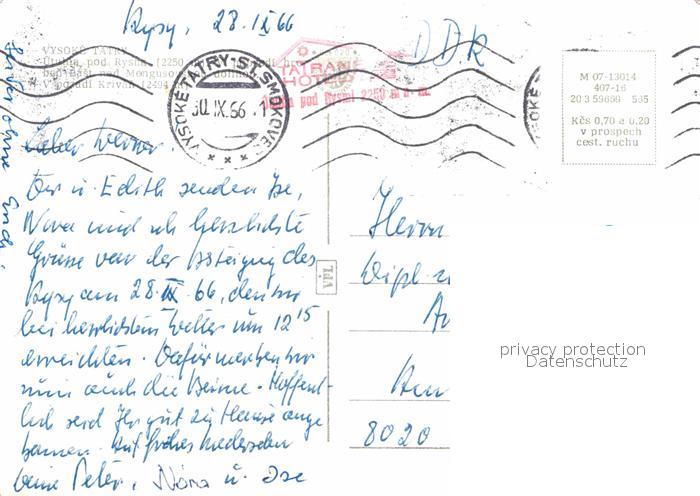 Rysy, 28.IX 66
DDR
VYSOKÉ TATRY
Chata pod Rysmi [2250
V pozadí Kriváň [2494
VYSOKÉ TATRY-ST. SMOKOVEC
30.IX.66
TATRANSKÉ
HOTELY
Chata pod Rysmi 2250 m n. m.
M 07-13014
407-16
20 3 59669 565
Kčs 0,70 a 0,20
v prospech
cest. ruchu
Lieber Werner
Dir u. Edith senden Ise,
Nora und ich herzlichste
Grüsse von der Besteigung des
Rysy am 28.IX.66, den wir
bei herrlichstem Wetter um 12 15
erreichten. Dafür merken wir
nun auch die Beine. Hoffent-
lich seid Ihr gut zu Hause ange
kommen. Auf frohes Wiedersehen
Peter, Nora u. Ise
TdA
Herrn
Dipl.
8020
privacy protection
Datenschutz